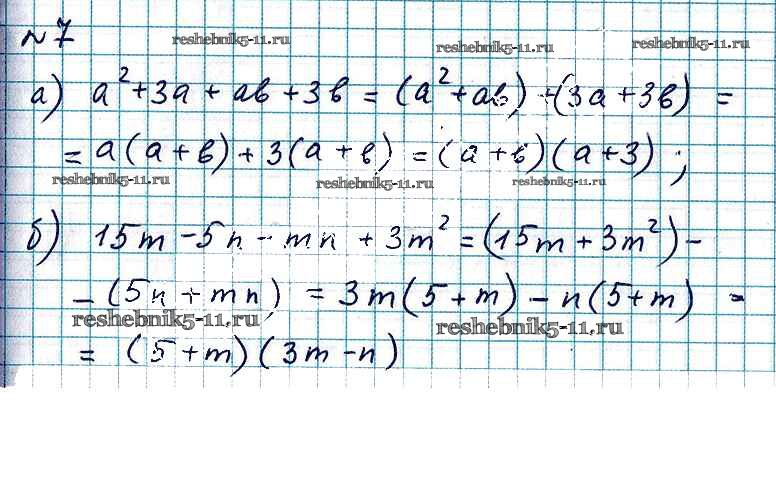 № 7
reshebnik5-11.ru reshebnik5-11.ru reshebnik5-11.ru
а) a² + 3a + ab + 3b = (a² + ab) + (3a + 3b) =
= a(a + b) + 3(a + b) = (a + b)(a + 3);
reshebnik5-11.ru reshebnik5-11.ru reshebnik5-11.ru
б) 15m - 5n - mn + 3m² = (15m + 3m²) -
- (5n + mn) = 3m(5 + m) - n(5 + m) =
reshebnik5-11.ru reshebnik5-11.ru
= (5 + m)(3m - n)